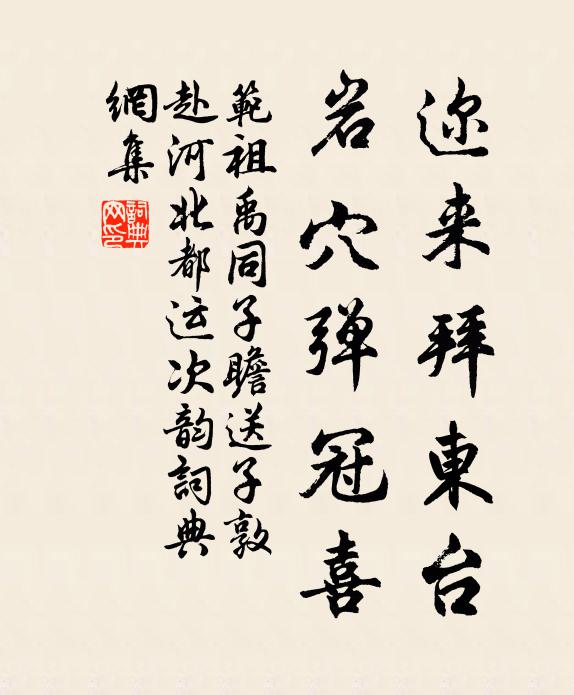 迩来拜東台
岩穴弹冠喜
範祖禹同子瞻送子敦
赴河北都运次韵詞典
網集
詞典
网印